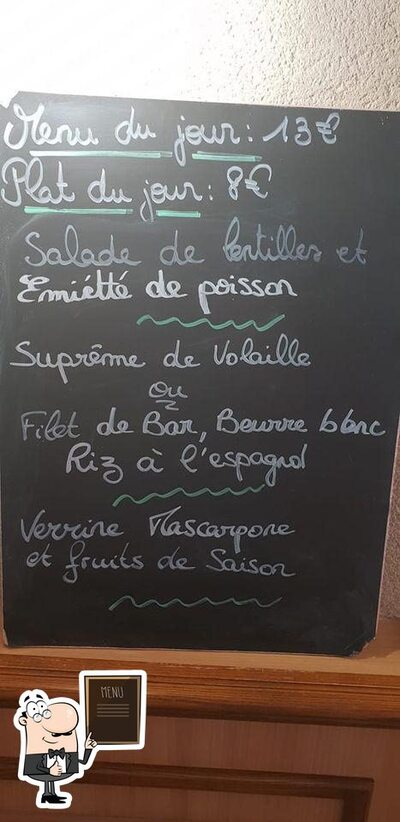 Menu du jour : 13€
Plat du jour : 8€
Salade de lentilles et
Emiétté de poisson
Suprême de Volaille
ou
Filet de Bar, Beurre blanc
Riz à l'espagnol
Verrine Mascarpone
et fruits de Saison
MENU